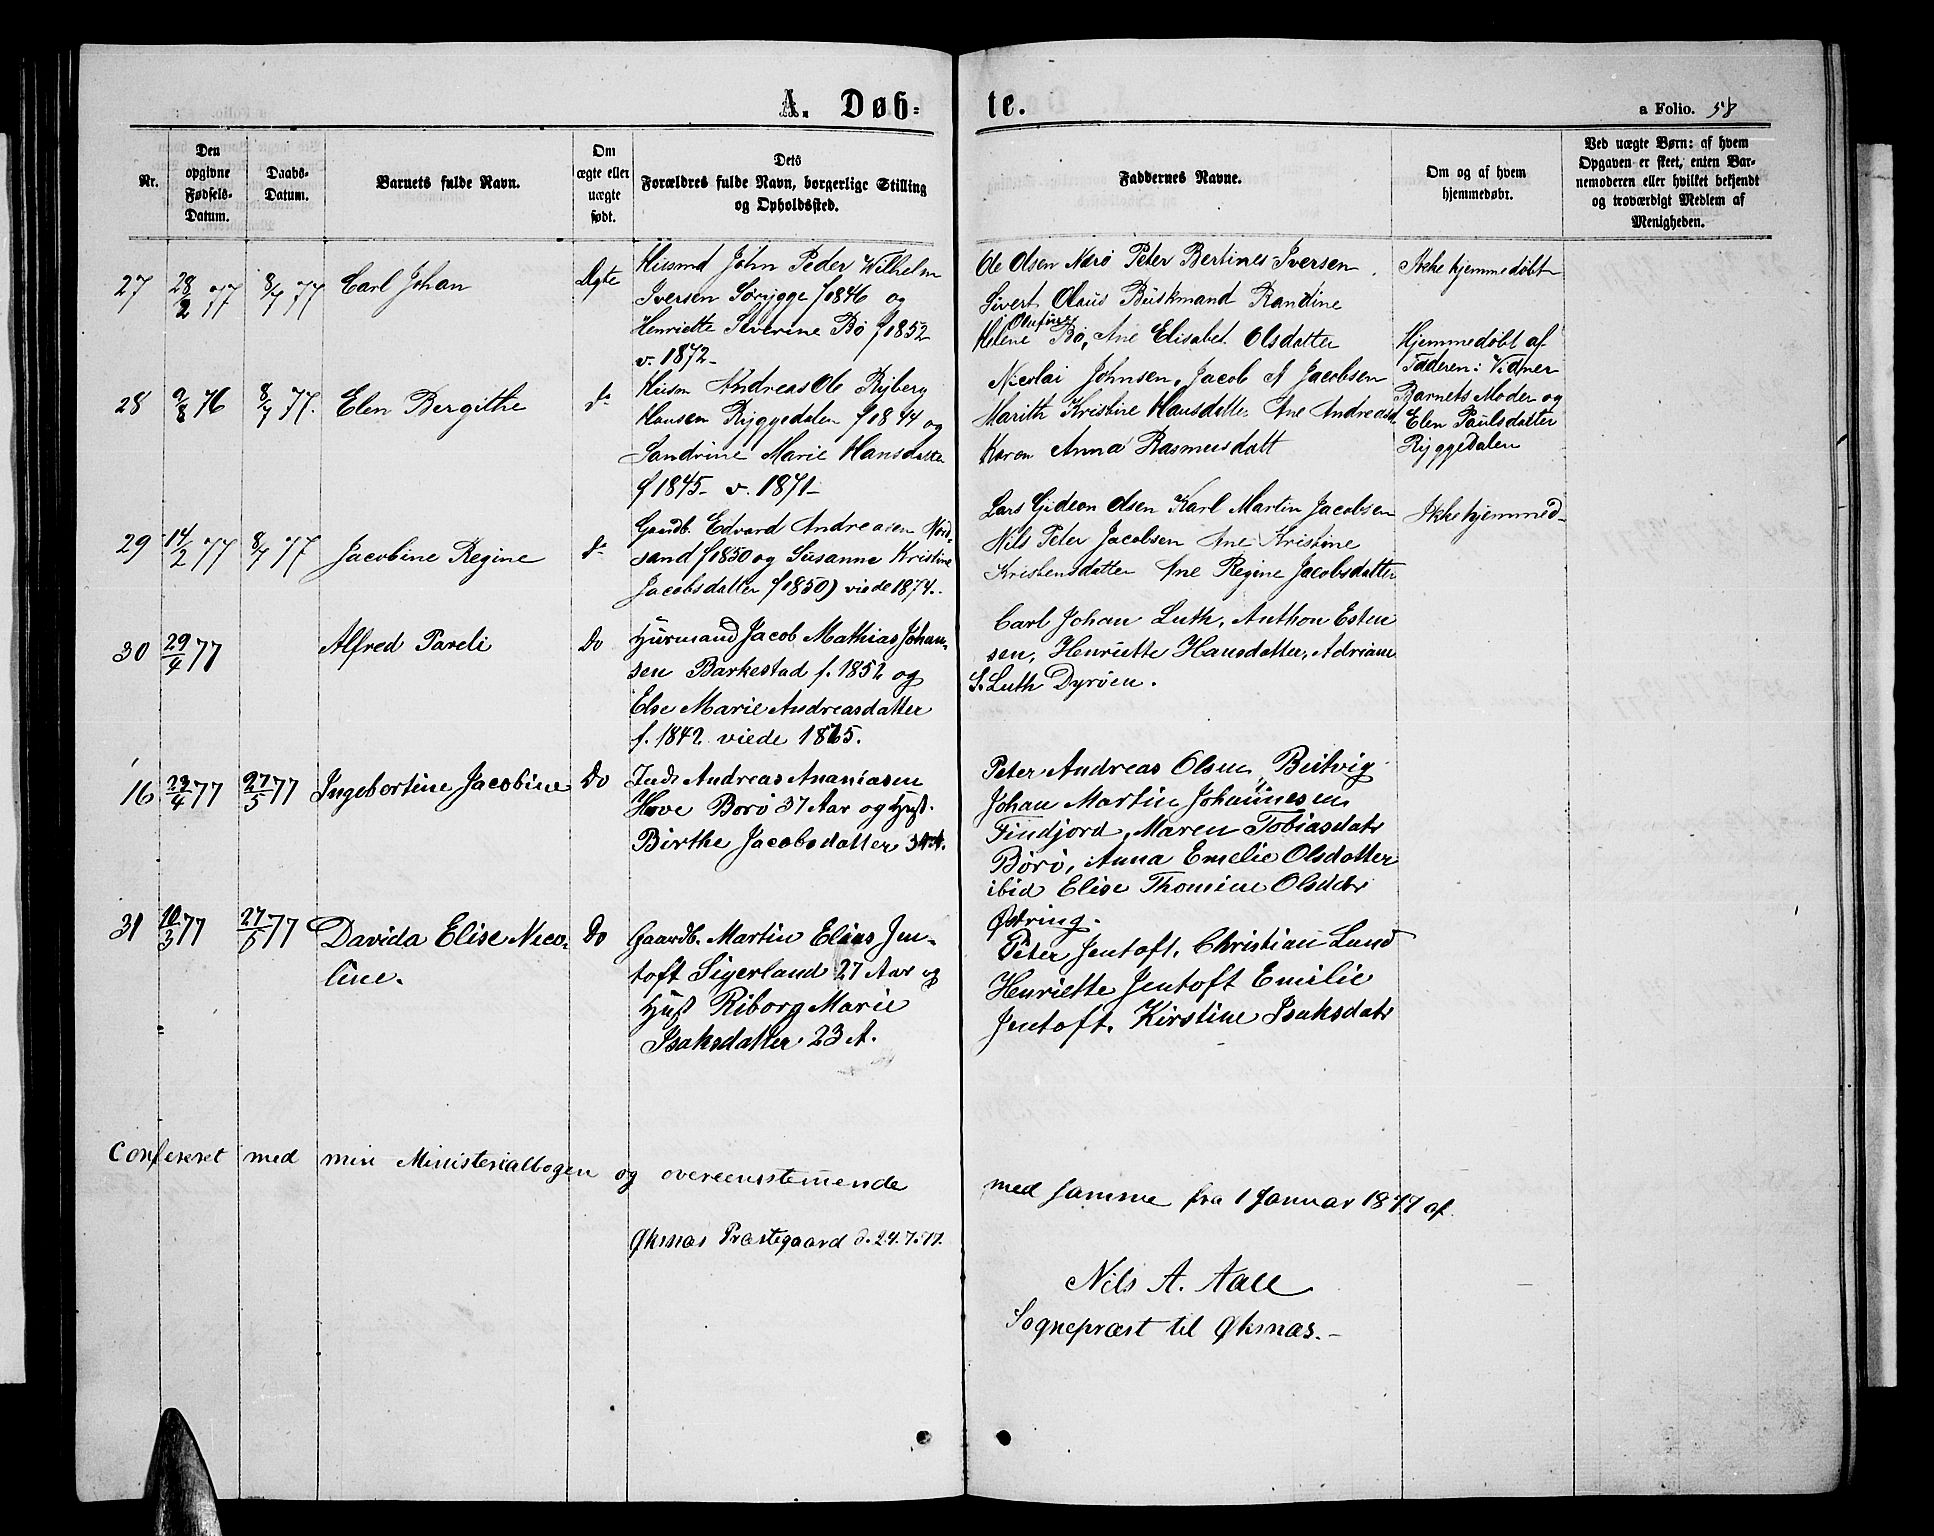 A. Døb-
te.
a Folio. 58
Nr.
Den opgivne Fødsels-Datum.
Daabs-Datum.
Barnets fulde Navn.
Om ægte eller uægte født.
Dets Forældres fulde Navn, borgerlige Stilling og Opholdssted.
Faddernes Navne.
Om og af hvem hjemmedøbt.
Ved uægte Børn: af hvem Opgaven er skeet, enten Barnemoderen eller hvilket bekjendt og troværdigt Medlem af Menigheden.
27 28/2 77 8/7 77 Carl Johan Ægte
Husmd John Peder Wilhelm
Iversen Sørygge f 1846 og
Henriette Severine Bø f 1852
v. 1872-
Ole Olsen Nærø Peter Bertines Iversen
Sivert Olaus Buskmand Randine
Olufine
Helene Bø, Ane Elisabet Olsdatter
Ikke hjemmedøbt
28 9/8 76 8/7 77. Elen Bergithe do
Husm Andreas Ole Ryberg
Hansen Ryggedalen f 1844 og
Sandrine Marie Hansdatter
f 1845- v. 1871-
Nicolai Johnsen, Jacob A Jacobsen
Marith Kristine Hansdatter Ane Andreasd.
Karen Anna Rasmusdatt
Hjemmedøbt af
Faderen: Vidner
Barnets Moder og
Elen Paulsdatter
Ryggedalen
29 14/2 77 8/7 77 Jacobine Regine do
Gaardb. Edvard Andreasen Nord-
sand f 1850 og Susanne Kristine
Jacobsdatter f 1850) viede 1874.
Lars Gideon Olsen Karl Martin Jacobsen
Nils Peter Jacobsen Ane Kristine
Kristensdatter Ane Regine Jacobsdatter
Ikke hjemmed-
30 29/4 77 Alfred Pareli Do
Husmand Jacob Mathias Johan-
sen Barkestad f. 1852 og
Else Marie Andreasdatter
f. 1842 viede 1875.
Carl Johan Luth, Anthon Esten
sen, Henriette Hansdatter, Adriane
S. Luth Dyrøen.
16 23/4 77 27/5 77 Ingebortine Jacobine Do
Inds Andreas Ananiasen
Hove Børø 37 Aar og Hust.
Birthe Jacobsdatter 34 A.
Peter Andreas Olsen, Buvig
Johan Martin Johannesen
Findjord, Maren Tobiasdatr
Børø, Anna Emelie Olsdatter
ibid Elise Thomine Olsdatr
Østring.
31 10/3 77 27/5 77 Davida Elise Nico-
line. Do
Gaardb. Martin Elias Jen-
toft Sigerland 27 Aar og
Hust Riborg Marie
Isaksdatter 23 A.
Peter Jentoft, Christian Lund
Henriette Jentoft Emilie
Jentoft, Kirstine Isaksdatr
Confereret med min Ministerialbogen og overeensstemmende
med samme fra 1 Januar 1877 af
Øksnæs Præstegaard d. 24.7.77.
Nils A. Aall
Sognepræst til Øksnæs.-